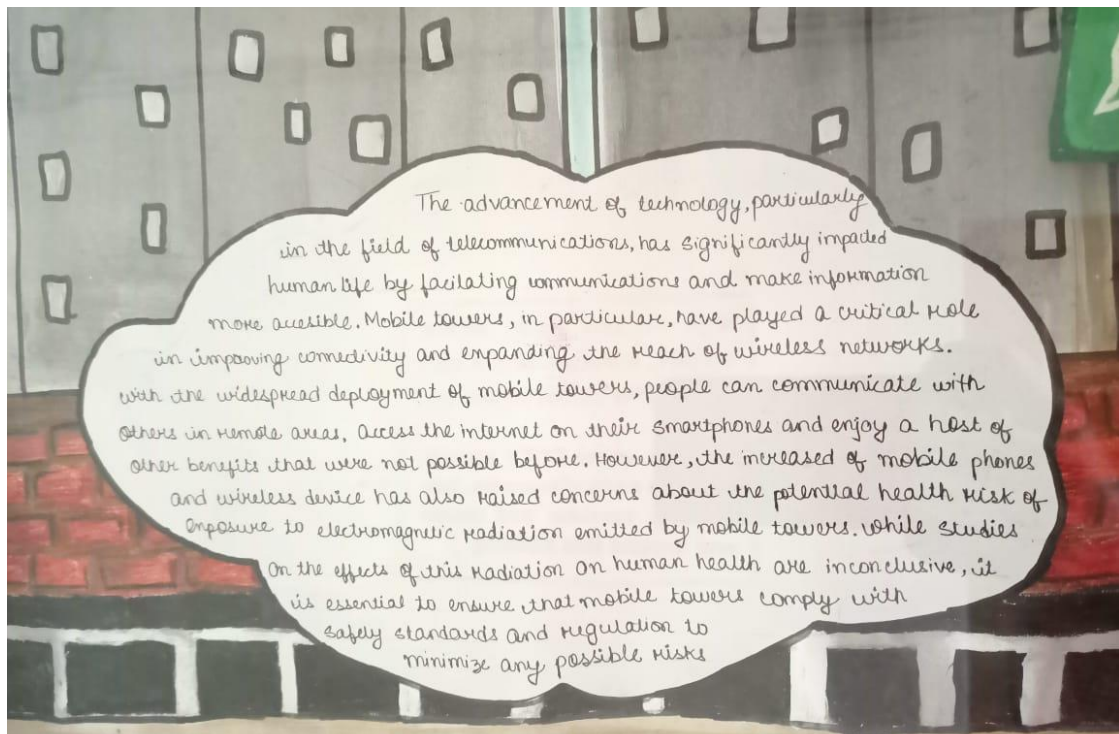 The advancement of technology, particularly
in the field of telecommunications, has significantly impacted
human life by facilating communications and make information
more accesible. Mobile towers, in particular, have played a critical role
in improving connectivity and expanding the reach of wireless networks.
with the widespread deployment of mobile towers, people can communicate with
others in remote areas, access the internet on their smartphones and enjoy a host of
other benefits that were not possible before. However, the increased of mobile phones
and wireless device has also raised concerns about the potential health risk of
exposure to electromagnetic radiation emitted by mobile towers. While studies
on the effects of this radiation on human health are inconclusive, it
is essential to ensure that mobile towers comply with
safely standards and regulation to
minimize any possible risks